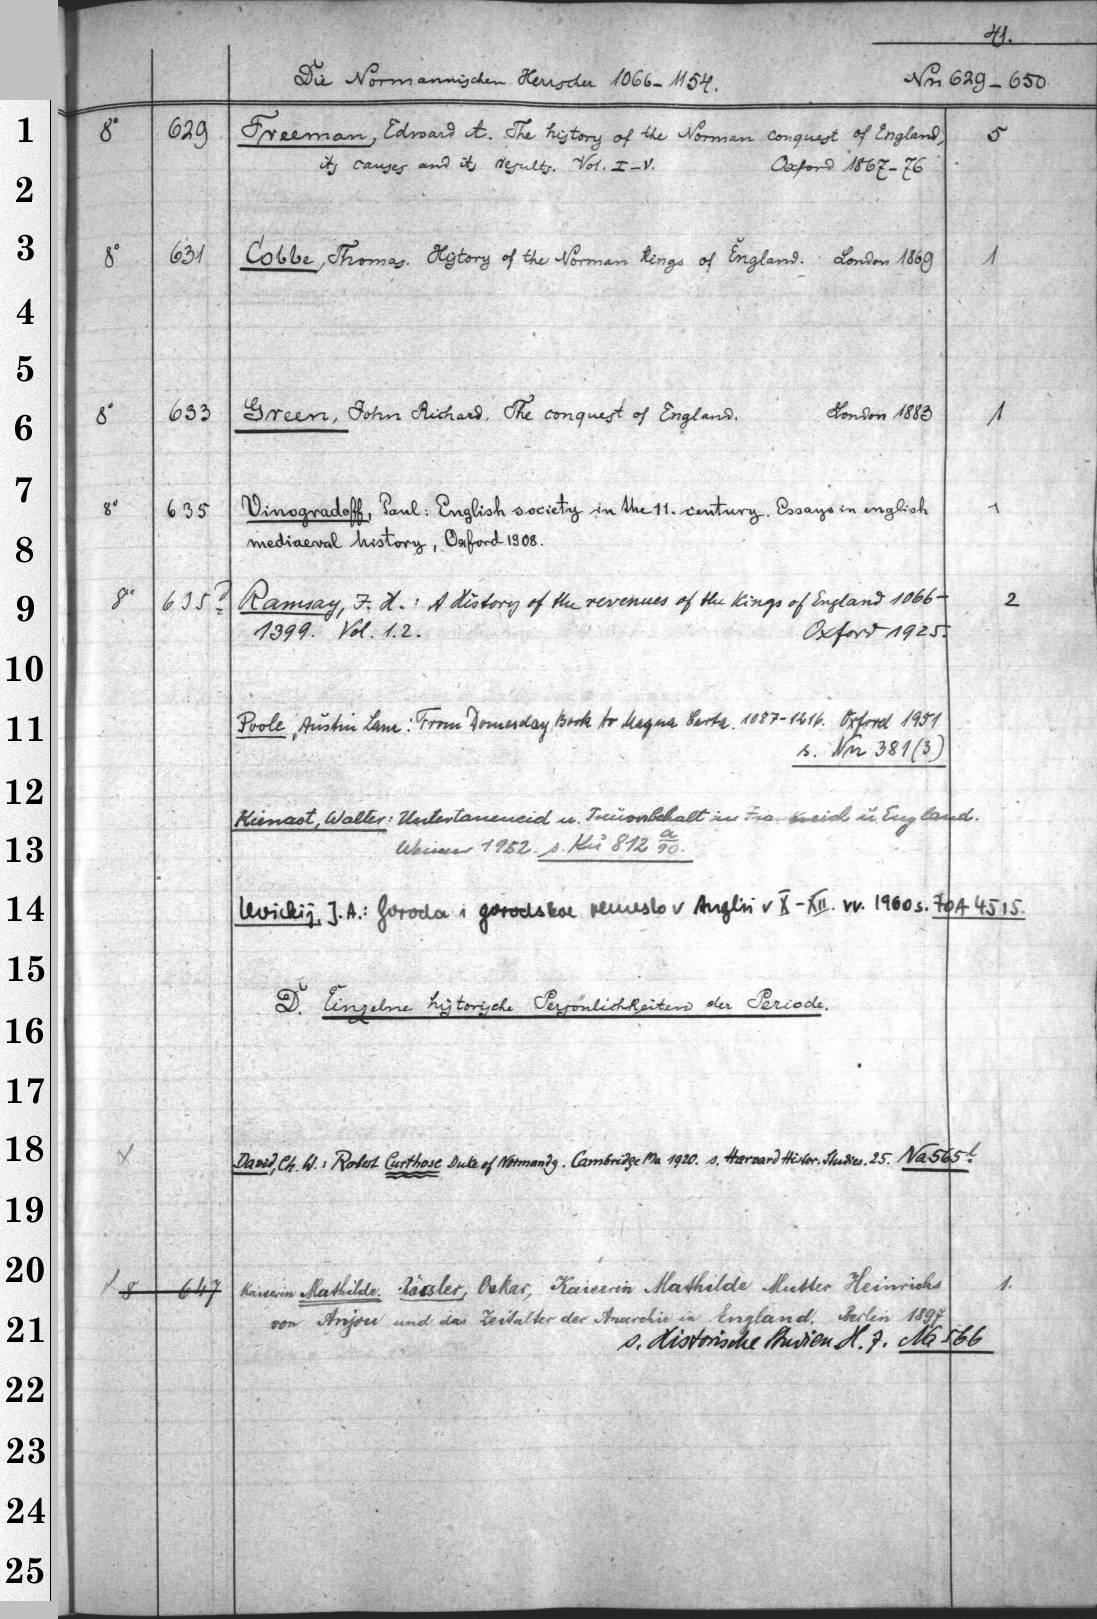 41.
Die Normannischen Herrscher 1066-1154. Nn 629-650
1 8° 629 Freeman, Edward A. The history of the Norman conquest of England, 5
its causes and its results. Vol. I-V. Oxford 1867-76
2
3 8° 631 Cobbe, Thomas. History of the Norman kings of England. London 1869 1
4
5
6 8° 633 Green, John Richard. The conquest of England. London 1883 1
7 8° 635 Vinogradoff, Paul: English society in the 11. century. Essays in english 1
8 mediaeval history, Oxford 1908.
9 8° 635 Ramsay, J. H.: A History of the revenues of the Kings of England 1066-
1399. Vol. 1.2. Oxford 1925. 2
10
11 Poole, Austin Lane: From Domesday Book to Magna Carta. 1087-1216. Oxford 1951
s. Nn 381(3)
12
Kienast, Walter: Untertaneneid u. Treuvorbehalt in Frankreich u. England.
13 Weimar 1952. s. Kü 812 a/90.
14 Levickij, J. A.: Goroda i gorodskoe remeslo v Anglii v X-XII. vv. 1960 s. 70A 4515.
15
D. Einzelne historische Persönlichkeiten der Periode.
16
17
18 David, Ch. W.: Robert Curthose Duke of Normandy. Cambridge Ma 1920. s. Harvard Histor. Studies. 25. Na 565
19
20 8 647 Kaiserin Mathilde. Rössler, Oskar, Kaiserin Mathilde Mutter Heinrichs 1.
21 von Anjou und das Zeitalter der Anarchie in England. Berlin 1897
s. Historische Studien H. 7. Na 566
22
23
24
25